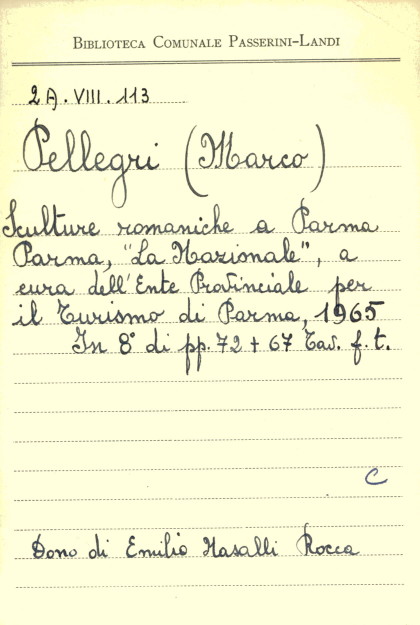 BIBLIOTECA COMUNALE PASSERINI-LANDI
2A. VIII. 113
Pellegri (Marco)
Sculture romaniche a Parma
Parma, "La Nazionale", a
cura dell'Ente Provinciale per
il Turismo di Parma, 1965
In 8° di pp. 72 + 67 Tav. f. t.
C
Dono di Emilio Nasalli Rocca